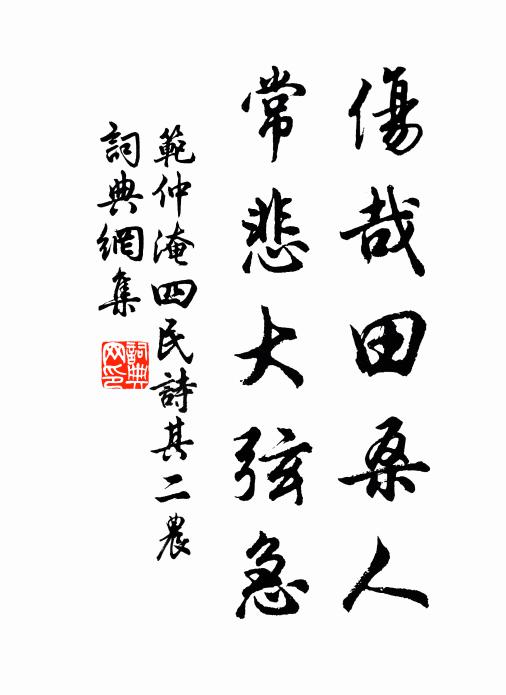 傷哉田桑人
常悲大弦急
範仲淹四民詩其二農
詞典網集
詞典網印